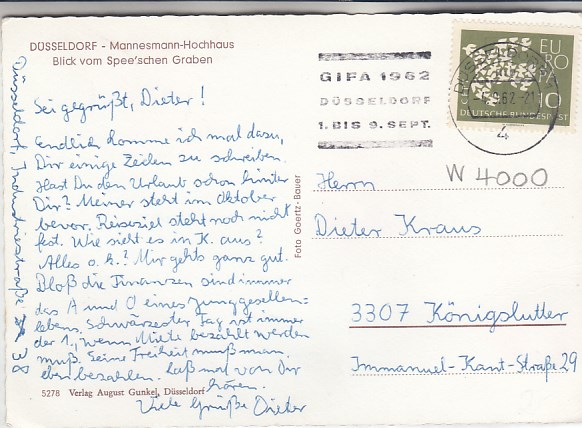 DÜSSELDORF - Mannesmann-Hochhaus
Blick vom Spee'schen Graben
Sei gegrüßt, Dieter!
Endlich komme ich mal dazu,
Dir einige Zeilen zu schreiben.
Hast Du den Urlaub schon hinter
Dir? Meiner steht im Oktober
bevor. Reiseziel steht noch nicht
fest. Wie sieht es in K. aus?
Alles o.k.? Mir gehts ganz gut.
Bloß die Finanzen sind immer
das A und O eines Junggesellen=
lebens. Schwärzester Tag ist immer
der 1., wenn Miete bezahlt werden
muß. Seine Freiheit muß man
eben bezahlen. Laß mal von Dir
hören.
Viele Grüße Dieter
5278 Verlag August Gunkel, Düsseldorf
Düsseldorf, Industriestraße 38
Foto Goertz-Bauer
GIFA 1962
DÜSSELDORF
1. BIS 9. SEPT.
DÜSSELDORF
.9.62.-21
4
EUROPA
CEPT
10
DEUTSCHE BUNDESPOST
W 4000
Herrn
Dieter Kraus
3307 Königslutter
Immanuel-Kant-Straße 29